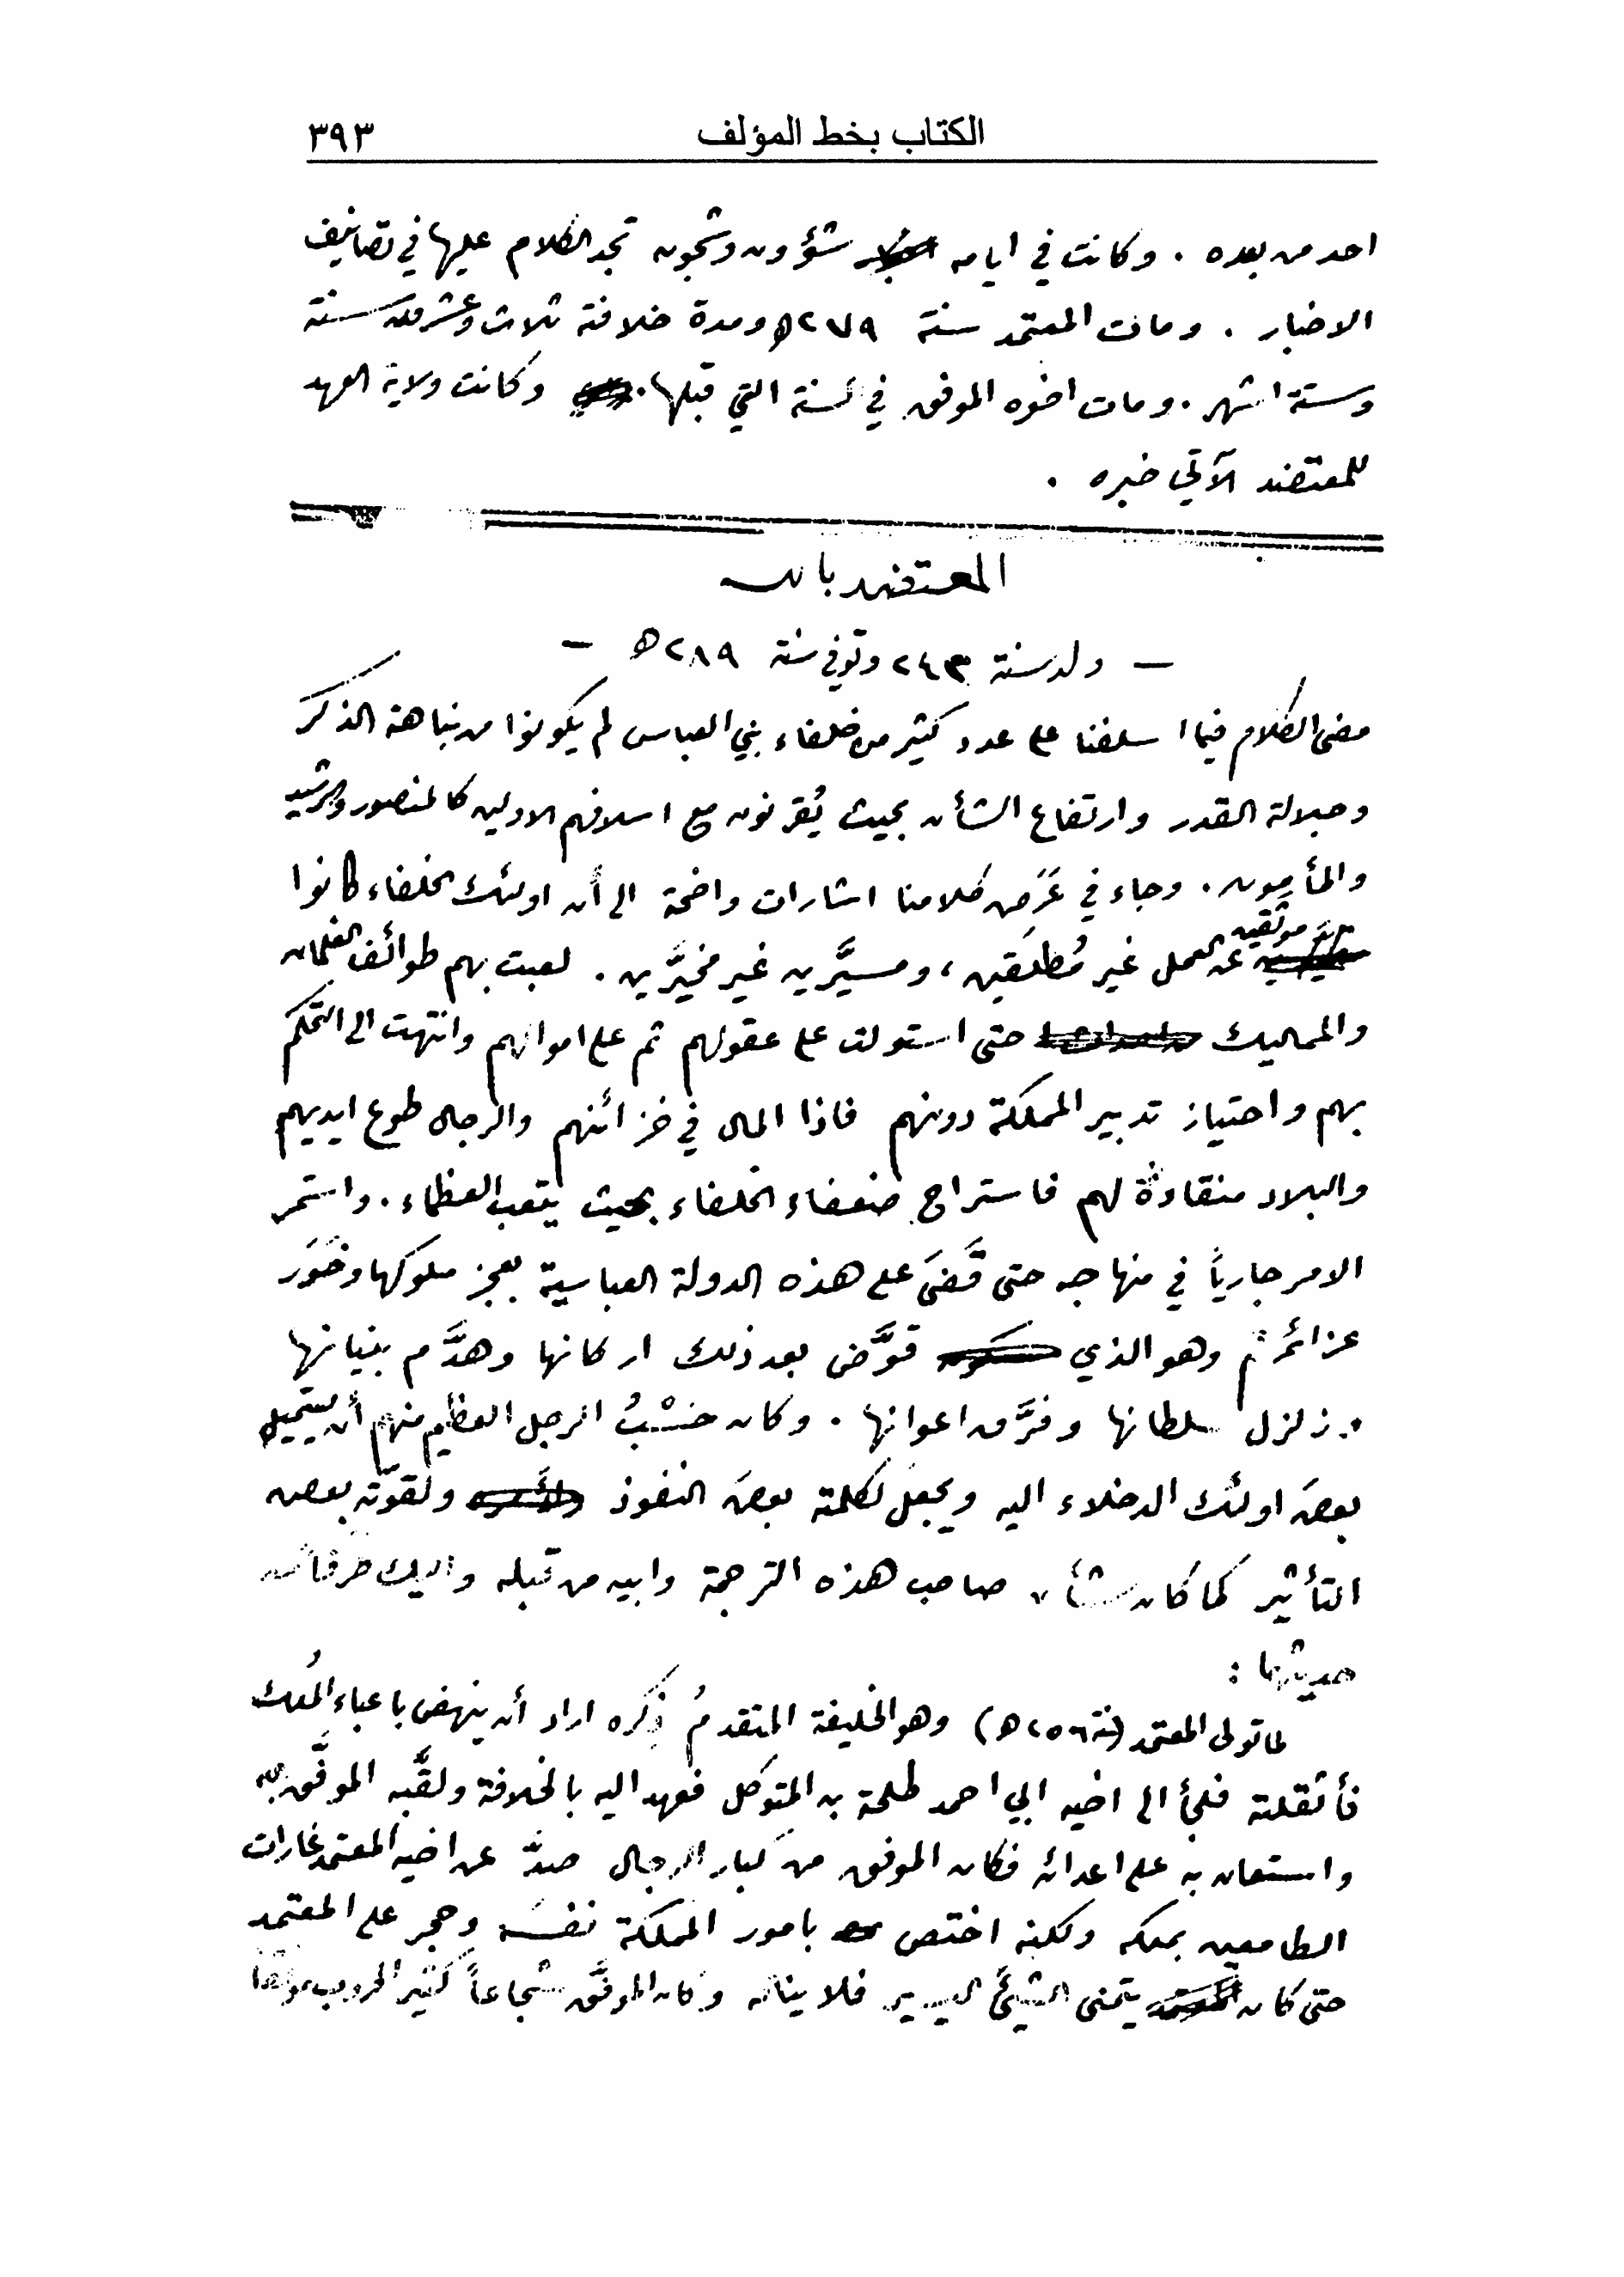 الكتاب بخط المؤلف ٣٩٣
احد من بعده . وكانت في ايامه شؤون وشجون تجد الكلام عليها في تصانيف
الاخبار . ومات المعتمد سنة ٢٧٩ﻫ ومدة خلافته ثلاث وعشرون سنة
وستة اشهر . ومات اخوه الموفق في السنة التي قبلها . وكانت ولاية العهد
للمعتضد الآتي خبره .
المعتضد بالله
– ولد سنة ٢٤٣ وتوفي سنة ٢٨٩ ﻫ –
مضى الكلام فيما اسلفنا على عدد كثير من خلفاء بني العباس لم يكونوا من نباهة الذكر
وجلالة القدر وارتفاع الشأن بحيث يُقرنون مع اسلافهم الاولين كالمنصور والرشيد
والمأمون . وجاء في عَرَض كلامنا اشارات واضحة الى أن اولئك الخلفاء كانوا
موثقين عن العمل غير مُطلَقين ، ومسيَّرين غير مخيَّرين . لعبت بهم طوائف الغلمان
والمماليك حتى استولت على عقولهم ثم على اموالهم وانتهت الى التحكم
بهم واحتياز تدبير المملكة دونهم فاذا المال في خزائنهم والرجال طوع ايديهم
والبلاد منقادة لهم فاستراح ضعفاء الخلفاء بحيث يتعب العظماء . واستمر
الامر جارياً في منهاجه حتى قَضَى على هذه الدولة العباسية بعجز ملوكها وخَوَر
عزائمهم وهو الذي قوَّض بعد ذلك اركانها وهدَّم بنيانها
وزلزل سلطانها وفرَّق اعوانها . وكان حَسْبُ الرجل العظيم منهم أن يستميل
بعضَ اولئك الدخلاء اليه ويجعل لكلمته بعضَ النفوذ ولقوّته بعض
التأثير كما كان شأن صاحب هذه الترجمة وابيه من قبله واليك طرفاً من
حديثهما :
لما تولى المعتمد (سنة ٢٥٦ ﻫ) وهو الخليفة المتقدمُ ذكره اراد أن ينهض باعباء المُلك
فأثقلته فلجأ الى اخيه ابي احمد طلحة بن المتوكل فعهد اليه بالخلافة ولقَّبه الموفَّق بالله
واستعان به على اعدائه فكان الموفق من كبار الرجال صدَّ عن اخيه المعتمد غارات
الطامعين بملكه ولكنه اختص بامور المملكة نفسَه وحجر على المعتمد
حتى كان يتمنى الشيئَ اليسير فلا يناله وكان الموفَّق شجاعاً كثير الحروب